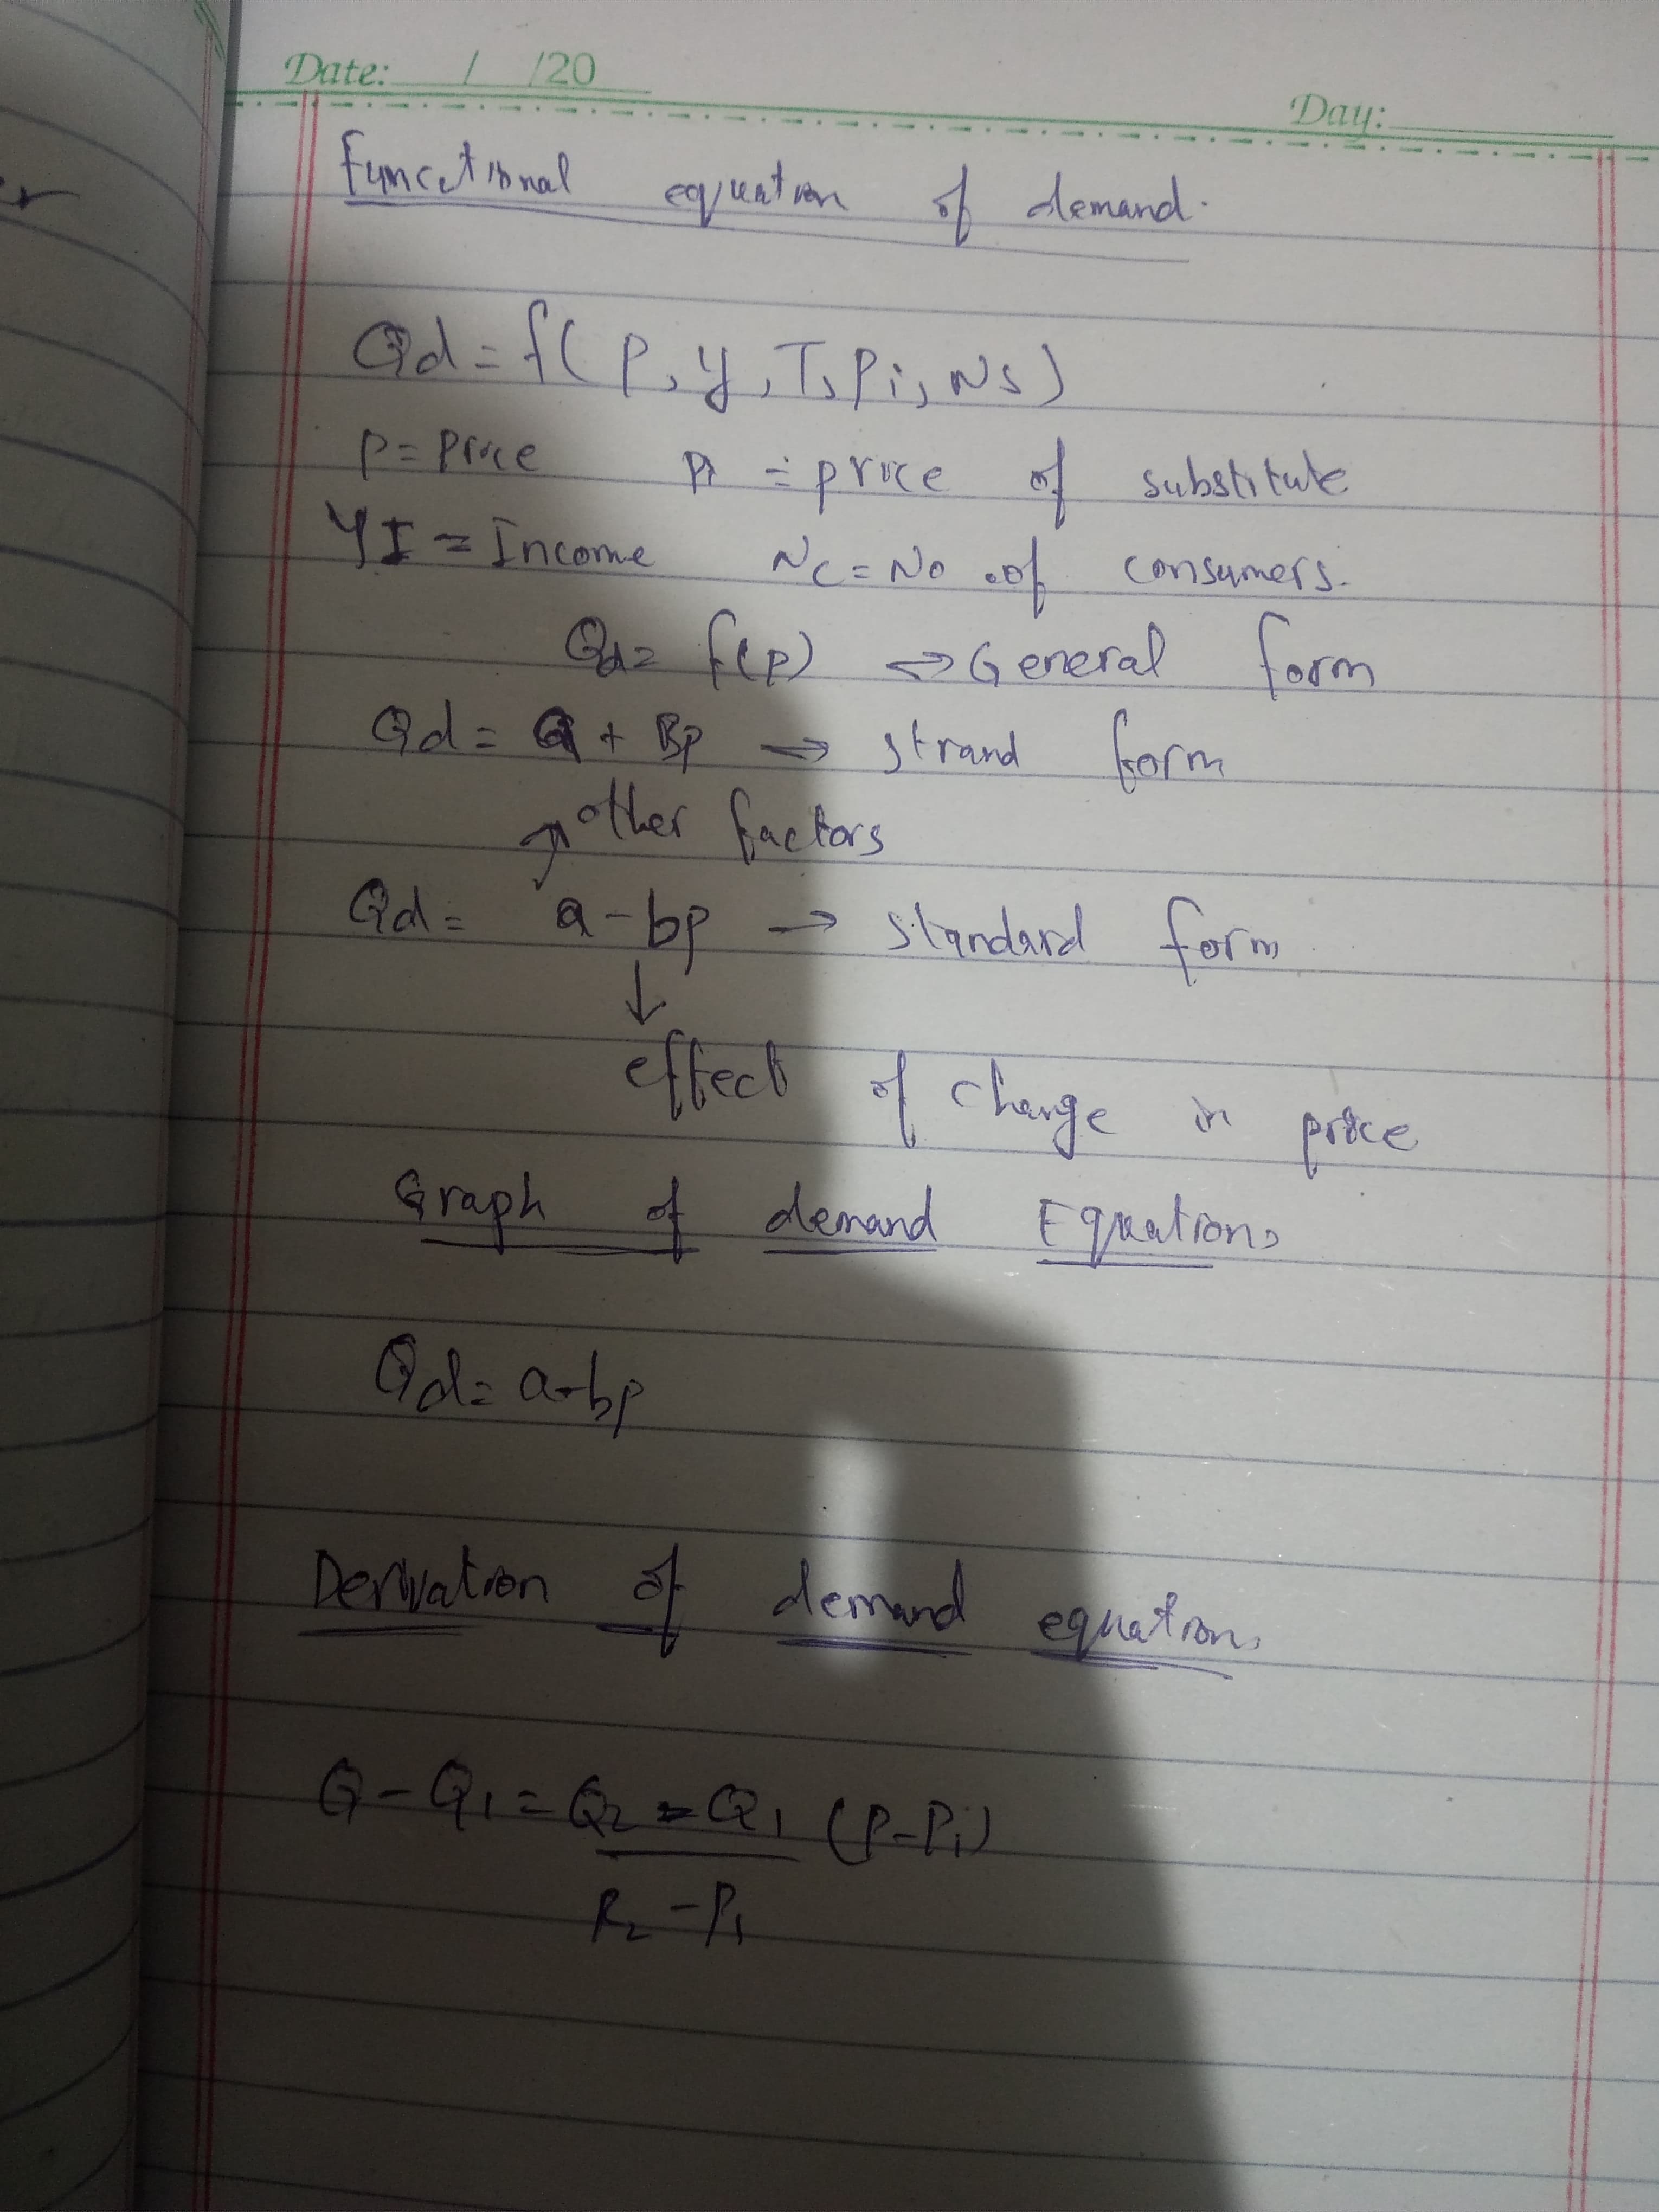 Date: / /20
Day:
Funcational equation of demand.
Qd = f( P, y, T, Pi, Ns )
P = Price Pi = price of substitute
YI = Income Nc = No .of consumers.
Qd = f(p) → General form
Qd = a + Bp → strand form
other factors
Qd = a - bp → standard form
effect of change in price
Graph of demand Equation,
Qd = a-bp
Derivation of demand equation,
Q - Q1 = Q2 - Q1 (P-Pi)
P2 - P1